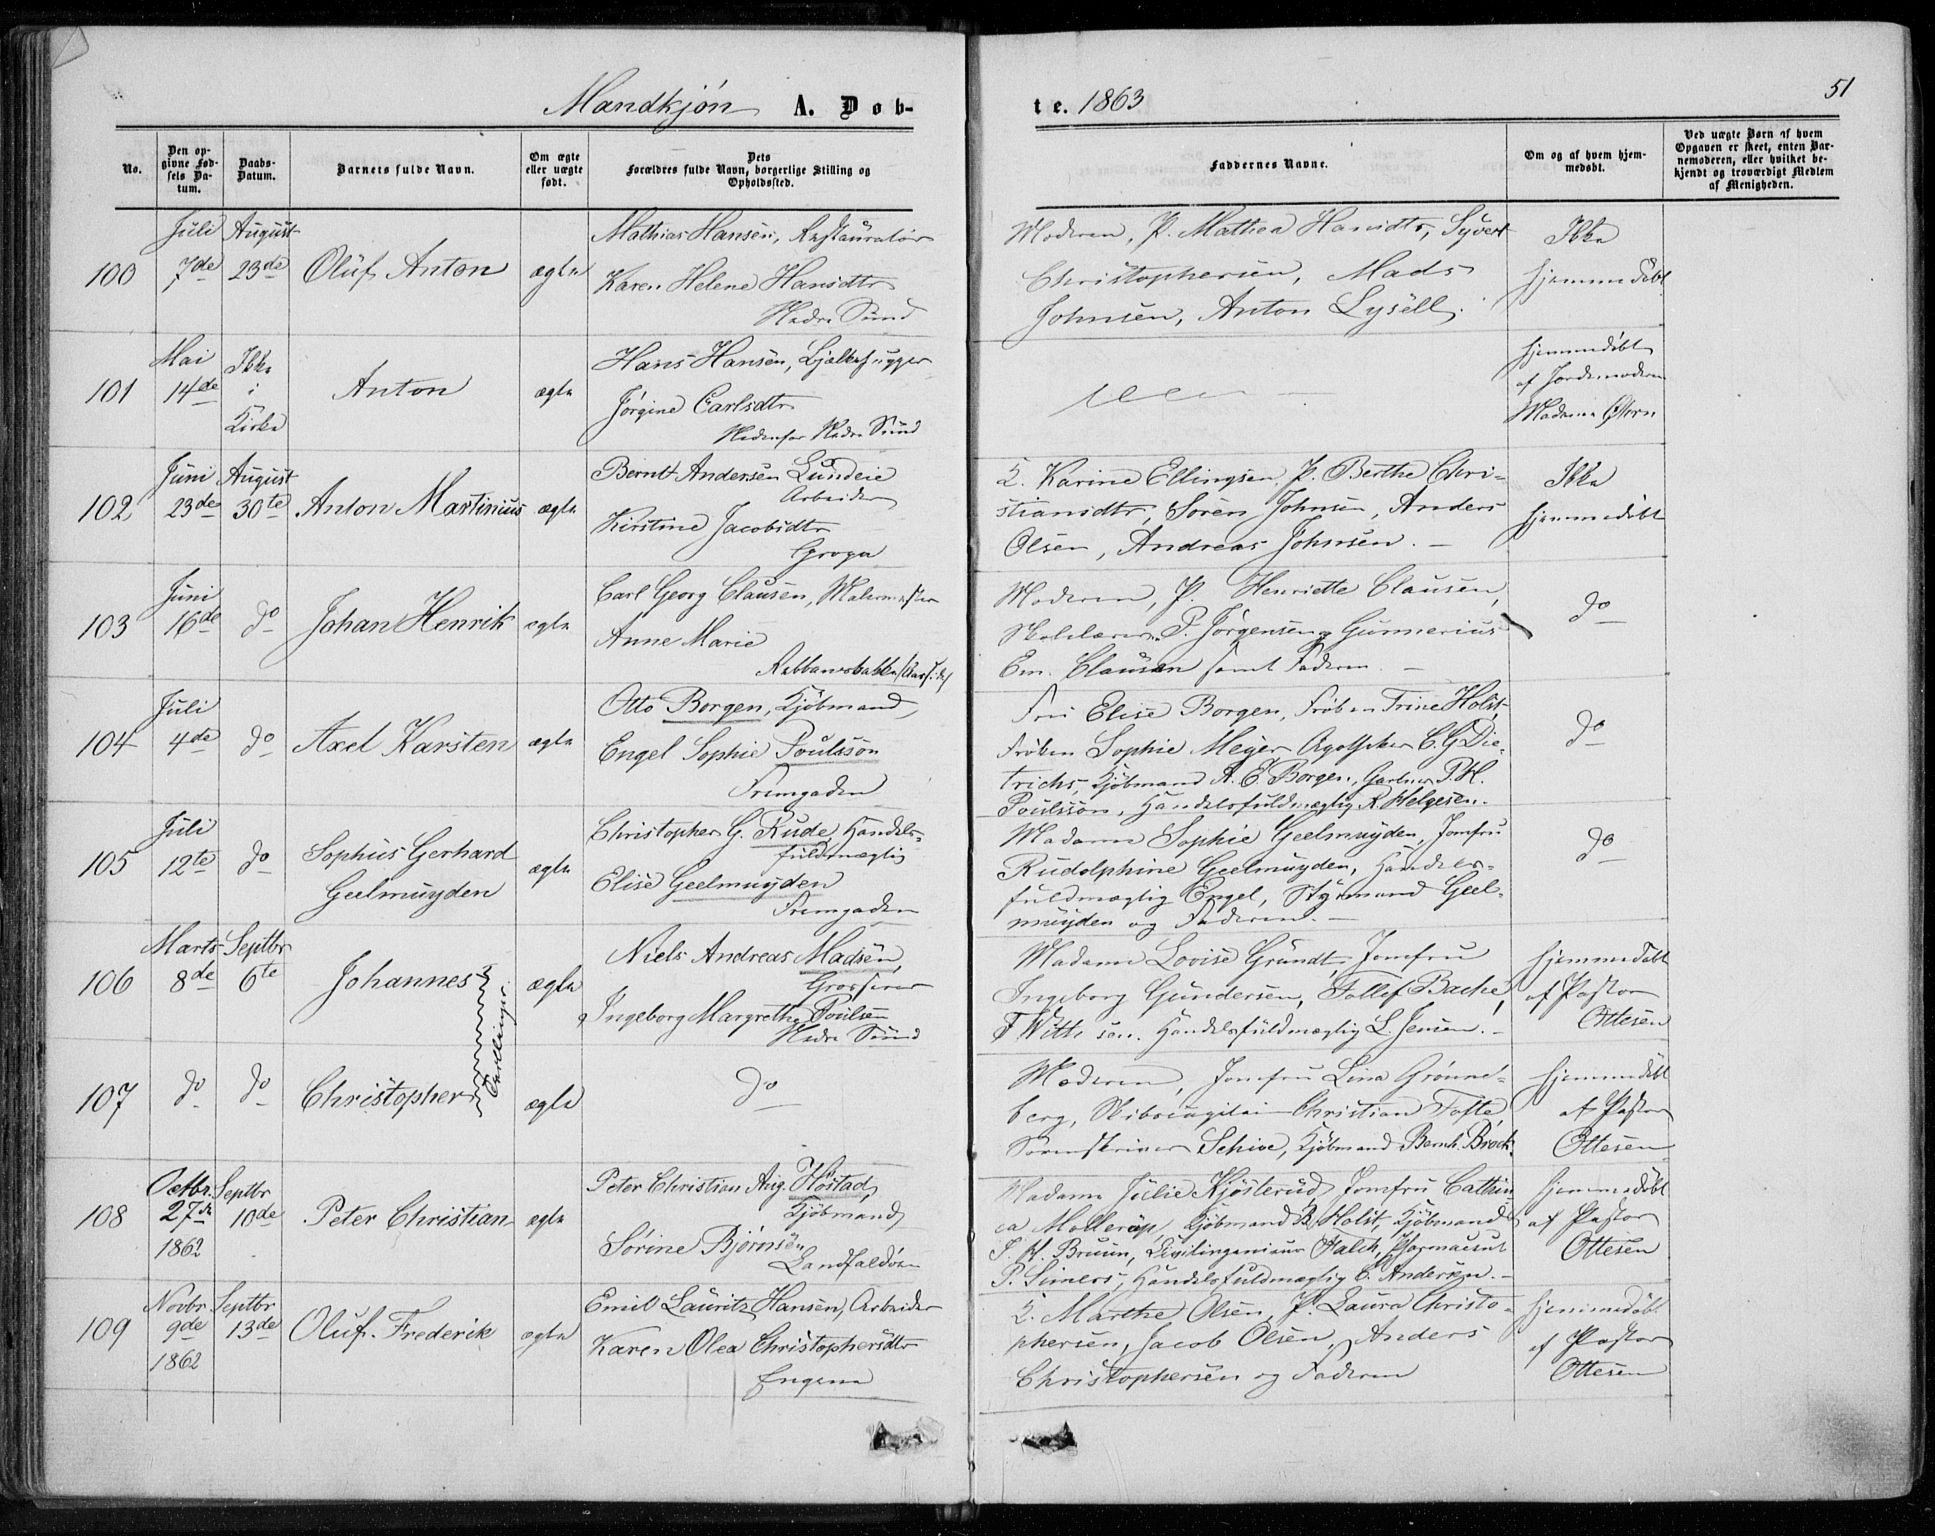 Mandkjøn A. Døb-
No.
Den op-
givne Fød-
sels Da-
tum.
Daabs-
Datum.
Barnets fulde Navn.
Om ægte
eller uægte
født.
Dets
Forældres fulde Navn, borgerlige Stilling og
Opholdssted.
100
Juli
7de
August
23de
Oluf Anton
ægte
Mathias Hansen, Restauratør
Karen Helene Hansdtr
Nedre Sund
101
Mai
14de
Ikke
i
Kirke
Anton
ægte
Hans Hansen, Bjælkehugger
Jørgine Carlsdtr
Nedenfor Nedre Sund
102
Juni
23de
August
30te
Anton Martinius
ægte
Bernt Andersen Lundeie
Arbeider
Kirstine Jacobsdtr
103
Juni
16de
do
Johan Henrik
ægte
Carl Georg Clausen, Malermester
Anne Marie
104
Juli
4de
do
Axel Karsten
ægte
Otto Borgen, Kjøbmand,
Engel Sophie Poulsson
Tremgaden
105
Juli
12te
do
Sophus Gerhard
Geelmuyden
ægte
Christopher G. Rude, Handels-
fuldmægtig
Elise Geelmuyden
Tremgaden
106
Marts
8de
Septbr
6te
Johannes
Tvillinger.
ægte
Niels Andreas Madsen,
Grosserer
Ingeborg Margrethe Poulsen
Nedre Sund
107
do
do
Christopher
ægte
do
108
Octbr.
27de
1862
Septbr
10de
Peter Christian
ægte
Peter Christian Aug. Høstad,
Kjøbmand
Sørine Bjørnsen
Landfaldøen
109
Novbr
9de
1862
Septbr
13de
Oluf Frederik
ægte
Emil Lauritz Hansen, Arbeider
Karen Olea Christophersdtr
Engene
te. 1863
51
Faddernes Navne.
Om og af hvem hjem-
medøbt.
Ved uægte Børn af hvem
Opgaven er skeet, enten Bar-
nemoderen, eller hvilket be-
kjendt og troværdigt Medlem
af Menigheden.
Moderen, P. Mathea Hansdtr, Syvert
Christophersen, Mads
Johnsen, Anton Lysell.
Ikke
hjemmedøbt
hjemmedøbt
af Jordemoderen
Madame
K. Karine Ellingsen, P. Berthe Chri-
stiansdtr, Søren Johnsen, Anders
Olsen, Andreas Johnsen.
Ikke
hjemmedøbt
Moderen, P. Henriette Clausen,
P. Jørgensen, Gunnerius
Em. Clausen samt Faderen.
do
Fru Elise Borgen, Frøken Trine Holst
Frøken Sophie Meyer, Apotheker C. G. Die-
trichs, Kjøbmand A. E. Borgen, Gartner P. H.
Poulsson, Handelsfuldmægtig R. Helgesen.
do
Madame Sophie Geelmuyden, Jomfru
Rudolphine Geelmuyden, Handels-
fuldmægtig Engel, Styrmand Geel-
muyden og Faderen.
do
Madame Lovise Grundt, Jomfru
Ingeborg Gundersen, Tollef Bache,
F. Witt sen. Handelsfuldmægtig L. Jensen.
hjemmedøbt
af Pastor
Ottesen
Moderen, Jomfru Lina Grønne-
berg, Skibscapitain Christian Tofte,
Sorenskriver Schive, Kjøbmand Bernh. Brock.
hjemmedøbt
af Pastor
Ottesen
Madame Julie Kjøsterud, Jomfru Cathrin
ca Mollerup, Kjøbmand R. Holst, Kjøbmand
J. H. Bruun, Civilingenieur Falch, Pharmaceut
P. Simers, Handelsfuldmægtig C. Andersen.
hjemmedøbt
af Pastor
Ottesen
K. Marthe Olsen, P. Laura Christo-
phersen, Jacob Olsen, Anders
Christophersen og Faderen
hjemmedøbt
af Pastor
Ottesen